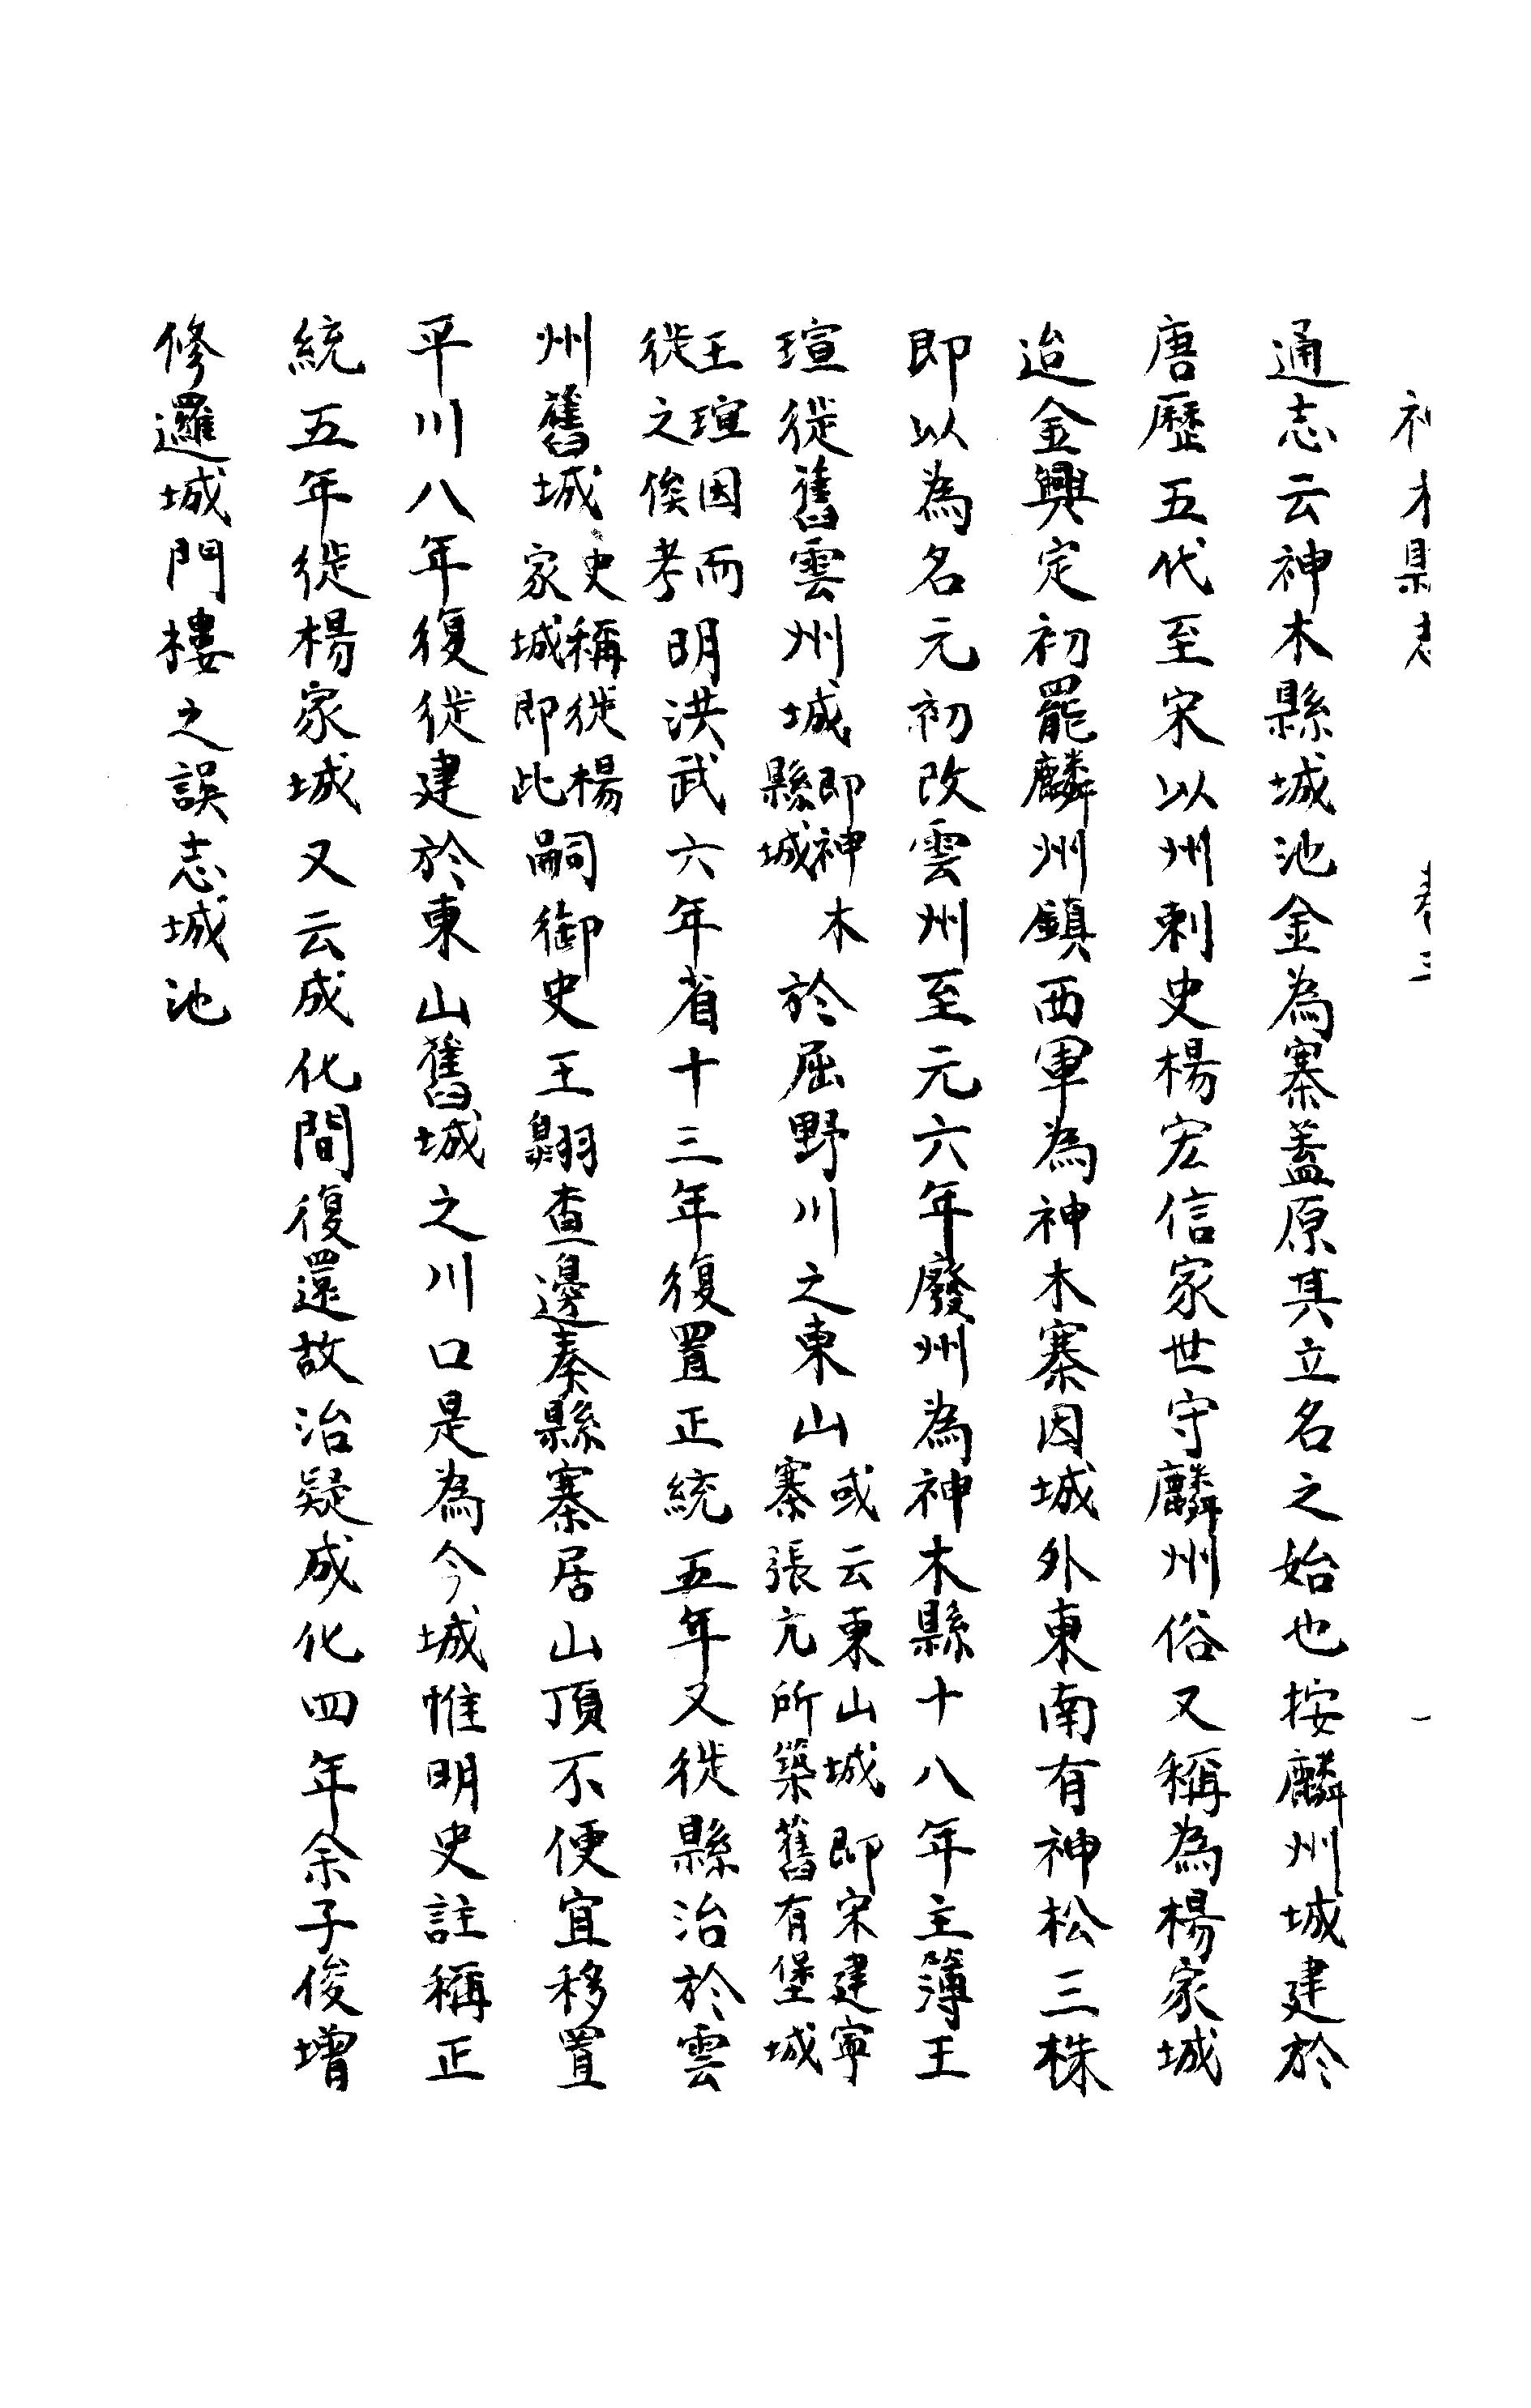 神木縣志 卷三 一
通志云神木縣城池金為寨蓋原其立名之始也按麟州城建於
唐歷五代至宋以州刺史楊宏信家世守麟州俗又稱為楊家城
迨金興定初罷麟州鎮西軍為神木寨因城外東南有神松三株
即以為名元初改雲州至元六年廢州為神木縣十八年主簿王
瑄徙舊雲州城即神木縣城於屈野川之東山或云東山城即宋建寧寨張亢所築舊有堡城
王瑄因而徙之俟考明洪武六年省十三年復置正統五年又徙縣治於雲
州舊城史稱徙楊家城即此嗣御史王翺查邊奏縣寨居山頂不便宜移置
平川八年復徙建於東山舊城之川口是為今城惟明史註稱正
統五年徙楊家城又云成化間復還故治疑成化四年余子俊增
修邏城門樓之誤志城池